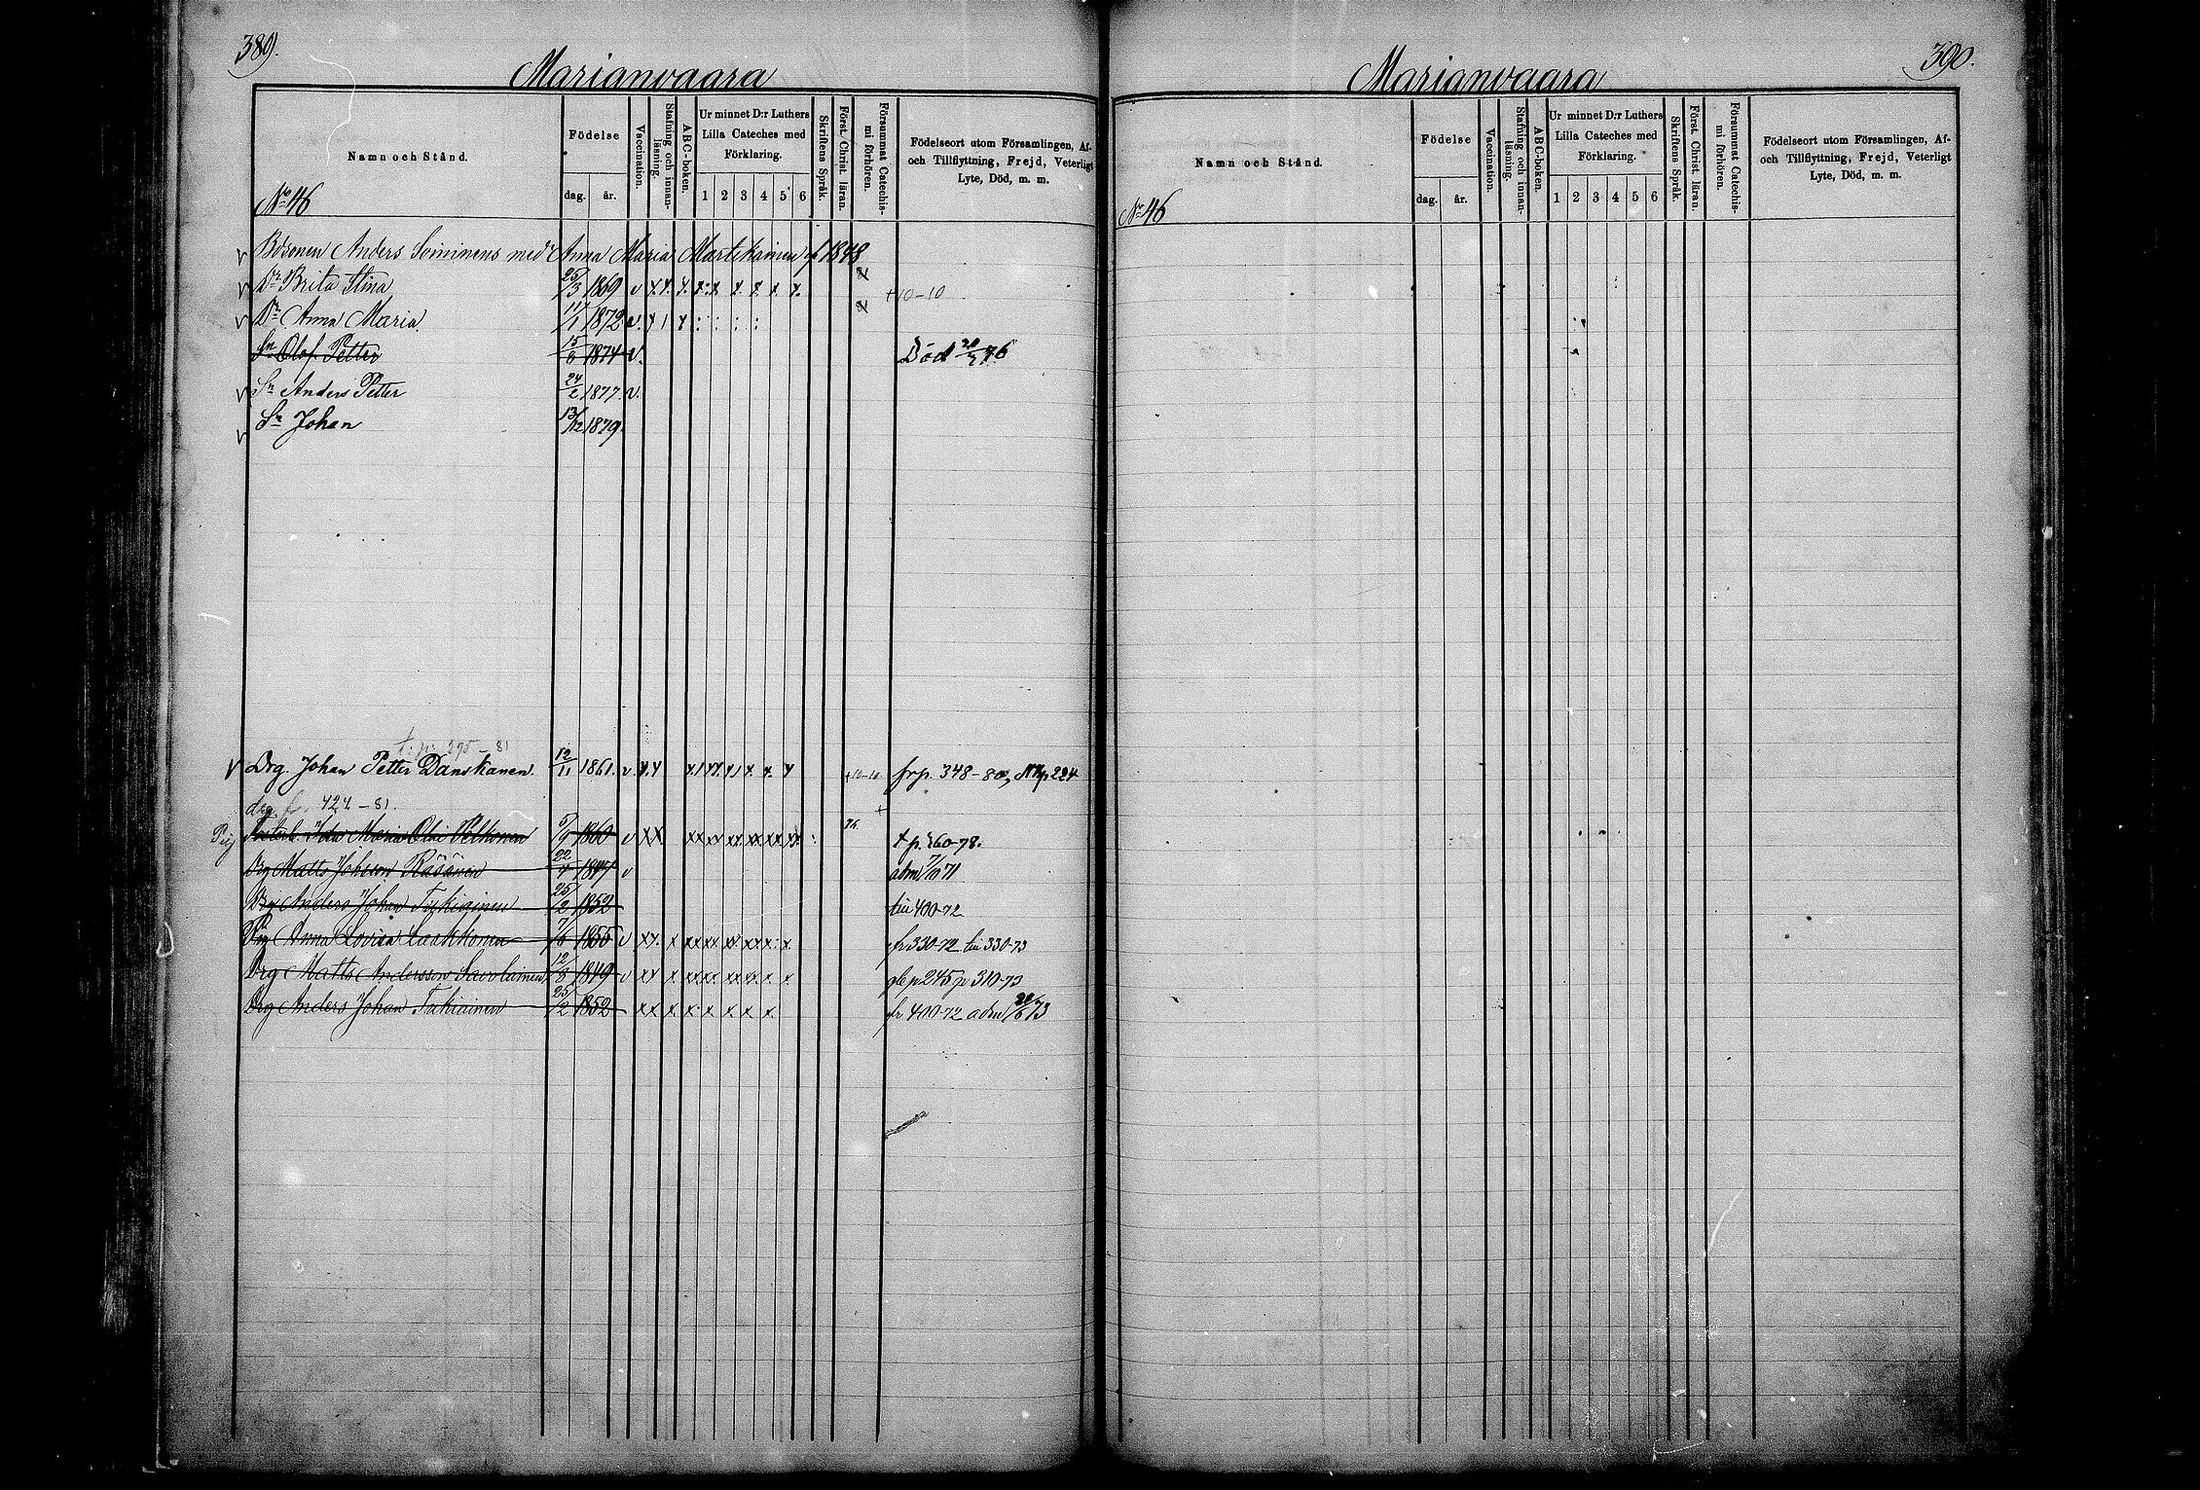 389.
Marianvaara
Namn och Stånd.
Födelse
dag. år.
Vaccination.
Stafning och innan-
läsning.
ABC-boken.
Ur minnet D:r Luthers
Lilla Cateches med
Förklaring.
1 2 3 4 5 6
Skriftens Språk.
Först. Christ. läran.
Försummat Catechis-
mi förhören.
Födelseort utom Församlingen, Af-
och Tillflyttning, Frejd, Veterligt
Lyte, Död, m. m.
No 46
Anders med Anna Maria Martikainen f 1848
Dr Brita Stina 25/3 1869 v
+10-10
Dr Anna Maria 11/1 1872 v.
Sn Olof Petter 15/6 1874 v. Död
Sn Anders Petter 24/2 1877. v.
Sn Johan 13/12 1879.
t. p. 395-81
Drg. Johan Petter Danskanen. 12/11 1861. v. frp. 348-80,
fr. 424-81.
Maria 1860 v 78.
Drg Matts Johsson Räsänen 22/4 1847 v
Drg Anders Johan Tukiainen 25/2 1852 till 400-72
Pig Anna Lovisa Laakkonen 7/6 1855 v fr 330-72 till 330-73
Drg Matts Andersson Savolainen 12/8 1849 v p 245 p 310-73
Drg Anders Johan Tukiainen 25/2 1852 fr 400-72
390.
Marianvaara
Namn och Stånd.
Födelse
dag. år.
Vaccination.
Stafning och innan-
läsning.
ABC-boken.
Ur minnet D:r Luthers
Lilla Cateches med
Förklaring.
1 2 3 4 5 6
Skriftens Språk.
Först. Christ. läran.
Försummat Catechis-
mi förhören.
Födelseort utom Församlingen, Af-
och Tillflyttning, Frejd, Veterligt
Lyte, Död, m. m.
No 46